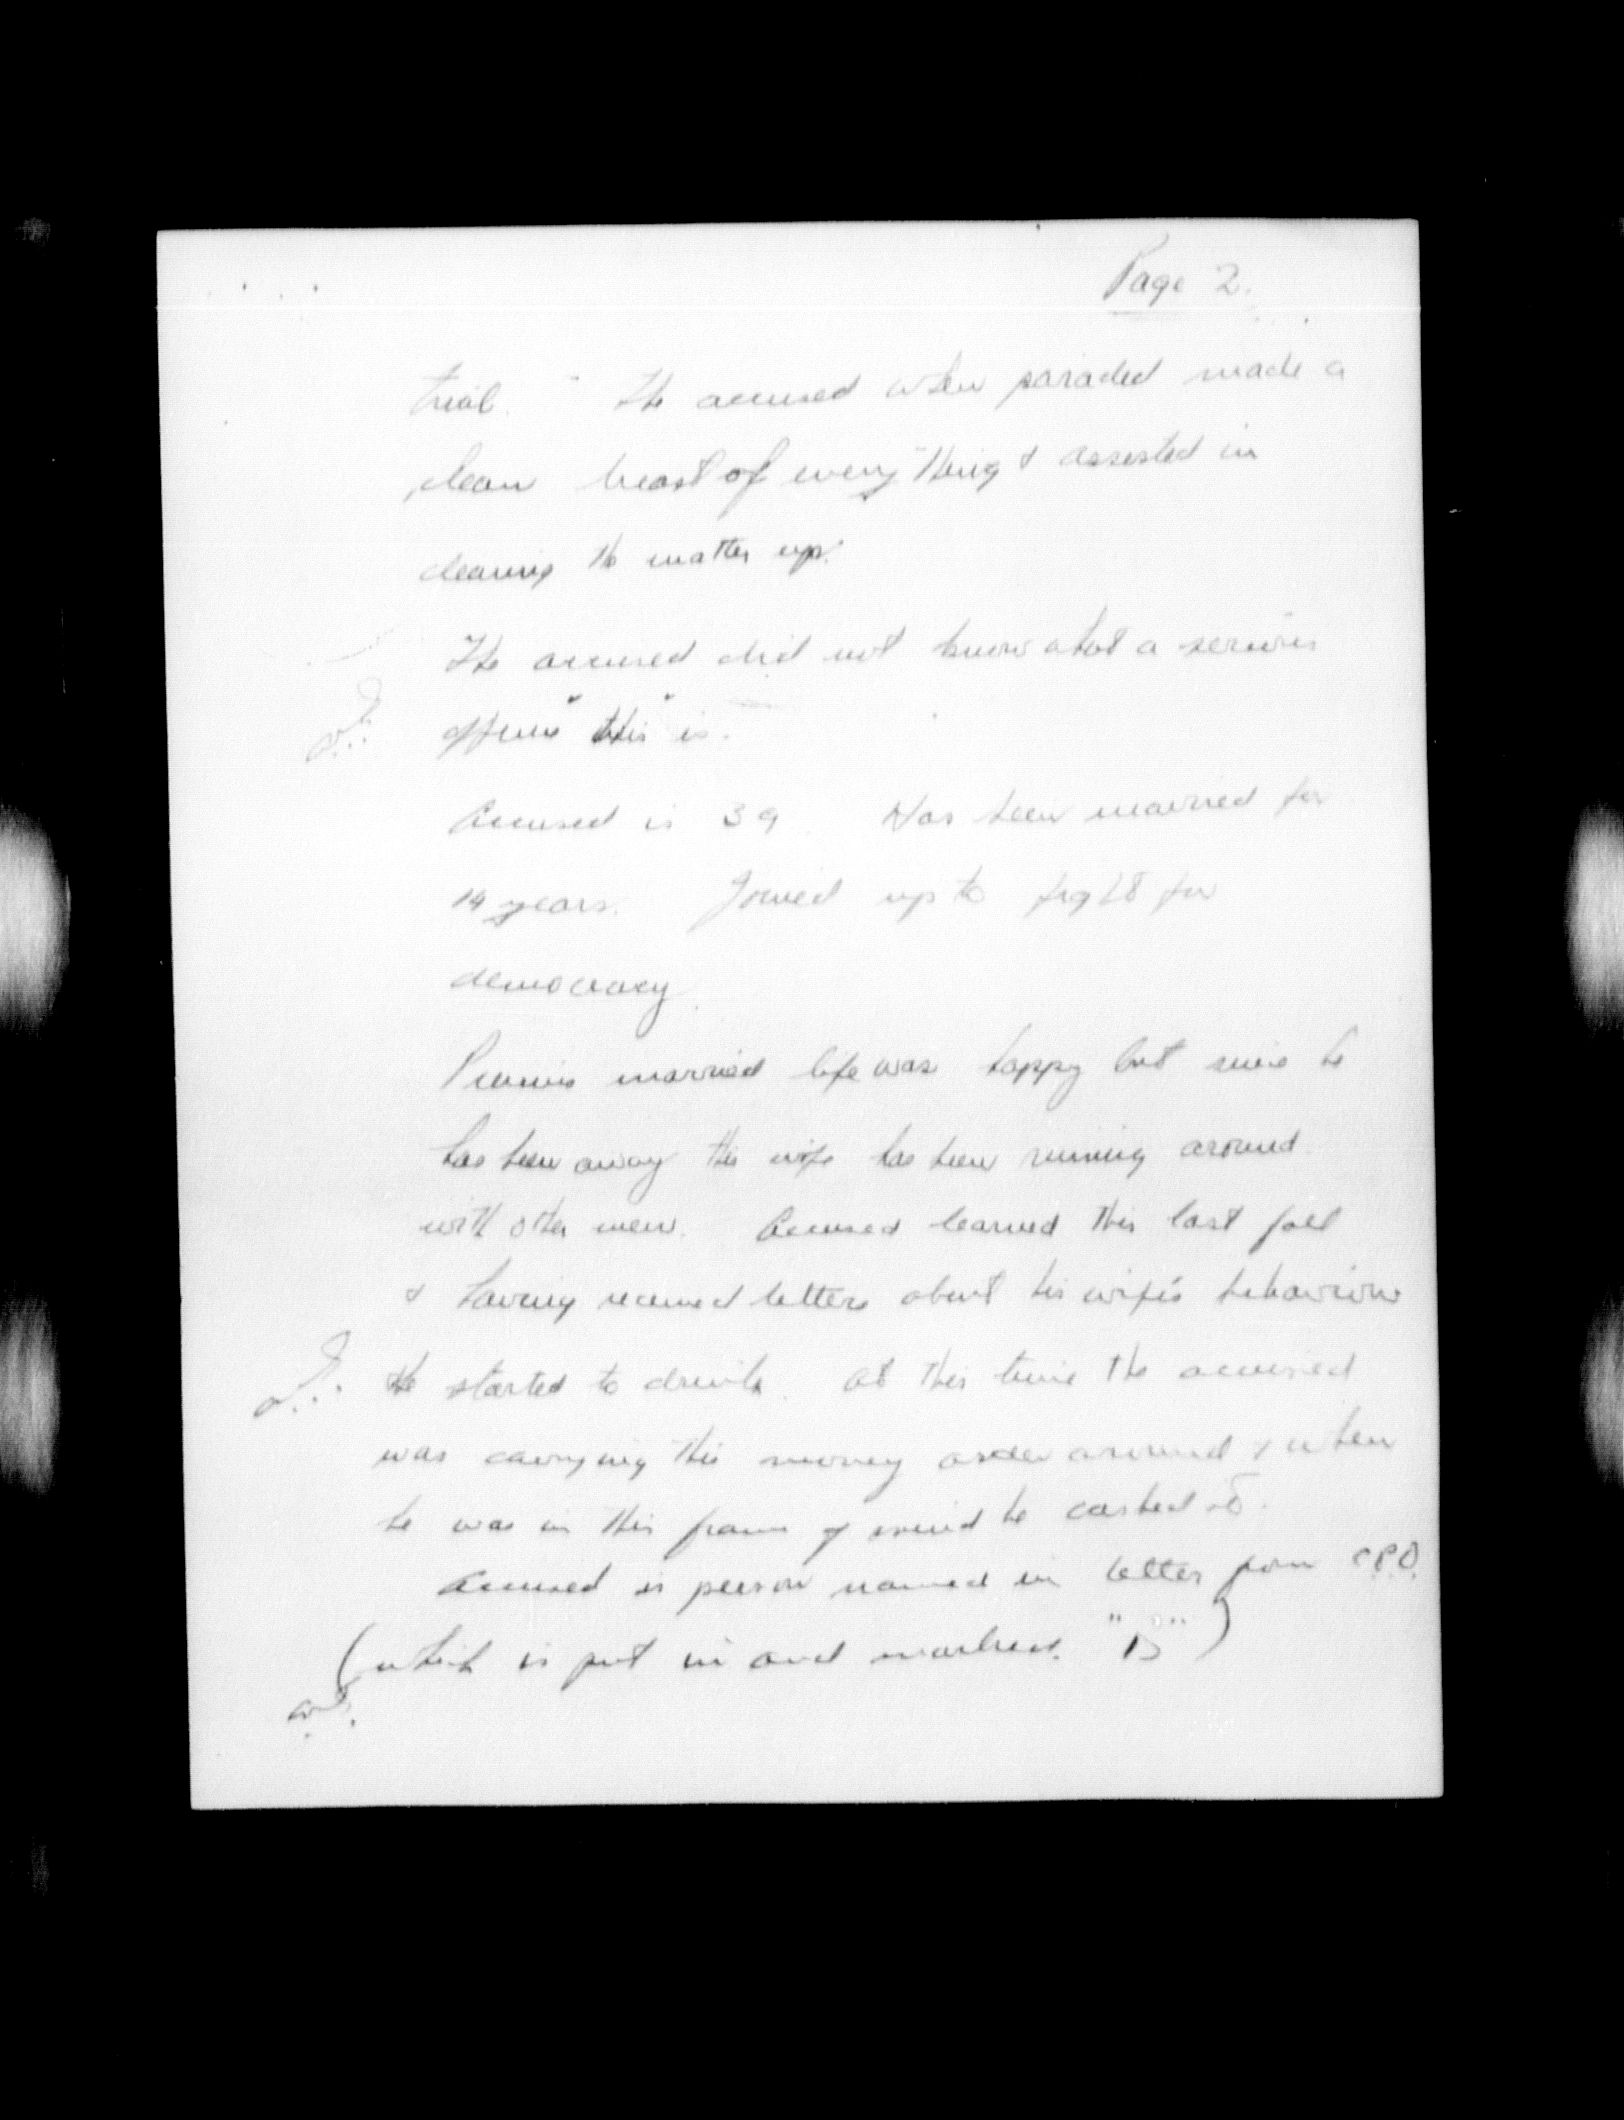 Page 2.
trial. The accused when paraded made a
clean breast of everything & assisted in
clearing the matter up.
The accused did not know what a serious
offence "this" is.
Accused is 39. Has been married for
19 years. Joined up to fight for
democracy.
Previous married life was happy but since he
has been away his wife has been running around
with other men. Accused learned this last fall
& having received letters about his wife's behaviour
he started to drink. At this time the accused
was carrying this money order around & when
he was in this frame of mind he cashed it.
Accused is person named in letter from CPO
(which is put in and marked "D")